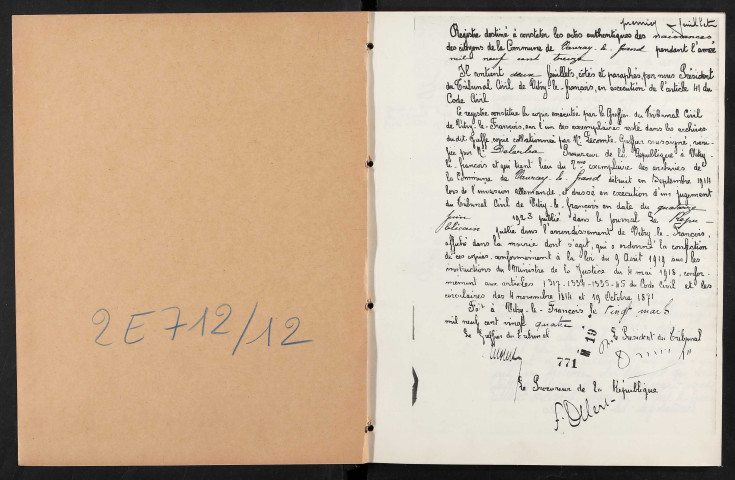 2E712/12
premier feuillet
Registre destiné à constater les actes authentiques des naissances
des citoyens de la Commune de Vauray-le-Grand pendant l'année
mil neuf cent treize
Il contient deux feuillets, côtés et paraphés, par nous Président
du Tribunal Civil de Vitry-le-François, en exécution de l'article 41 du
Code Civil
Ce registre constitue la copie exécutée par le Greffier du Tribunal Civil
de Vitry-le-François, sur l'un des exemplaires resté dans les archives
du dit Greffe, copie collationnée par Me Lecomte, Greffier soussigné, véri-
fiée par Mr Procureur de la République à Vitry-
le-François et qui tient lieu du 2me exemplaire des archives de
la Commune de Vauray-le-Grand détruit en Septembre 1914
lors de l'invasion allemande, et dressé en exécution d'un jugement
du Tribunal Civil de Vitry-le-François en date du quatorze
juin 1923 publié dans le Journal Le Répu-
blicain publié dans l'arrondissement de Vitry-le-François,
affiché dans la mairie dont s'agit, qui a ordonné la confection
de ces copies, conformément à la loi du 9 Août 1919 aux les
instructions du Ministre de la Justice du 4 mai 1918, confor-
mément aux articles 1317-1334-1335-45 du Code Civil et les
circulaires des 4 novembre 1814 et 19 Octobre 1871
Fait à Vitry-le-François le vingt mars
mil neuf cent vingt quatre
Le Greffier du Tribunal
Le Président du Tribunal
771
M 19
Le Procureur de la République